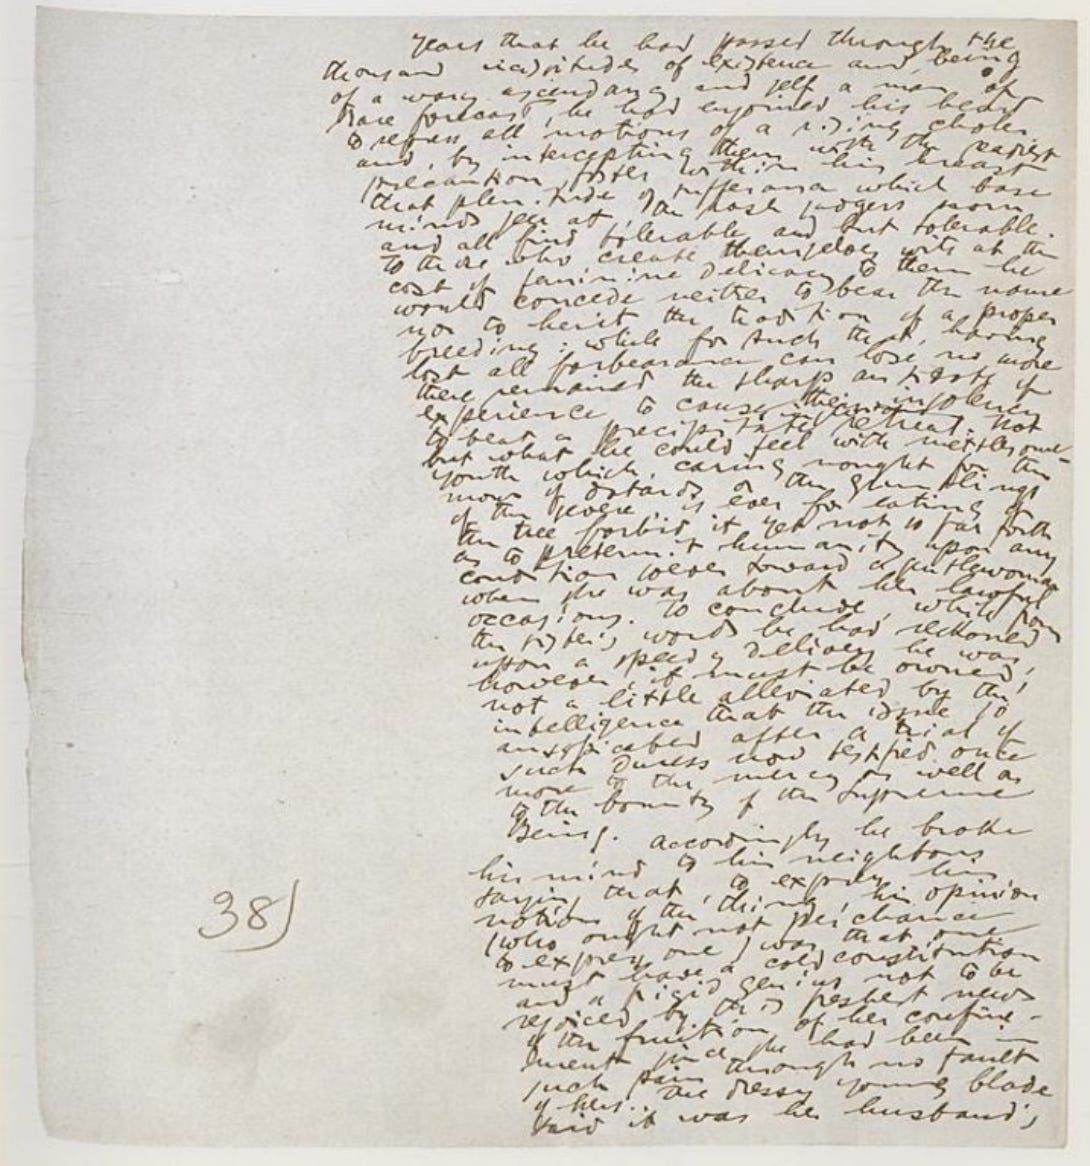 years that he had passed through the
thousand vicissitudes of existence and, being
of a wary ascendancy and self a man of
rare forecast, he had enjoined his heart
to repress all motions of a rising choler
and, by intercepting them with the readiest
precaution, foster within his breast
that plenitude of sufferance which base
minds jeer at, rash judgers scorn
and all find tolerable and but tolerable.
To those who create themselves wits at the
cost of feminine delicacy to them he
would concede neither to bear the name
nor to herit the tradition of a proper
breeding: while for such that, having
lost all forbearance can lose no more
there remained the sharp antidote of
experience to cause their insolency
to beat a precipitate retreat. Not
but what he could feel with mettlesome
youth which, caring nought for the
mows of dotards or the gruntlings
of the severe, is ever for eating of
the tree forbid it yet not so far forth
as to pretermit humanity upon any
condition soever toward a gentlewoman
when she was about her lawful
occasions. To conclude, while from
the sister's words he had reckoned
upon a speedy delivery he was,
however, it must be owned,
not a little alleviated by the
intelligence that the issue so
auspicated after a trial of
such duress now testified once
more to the mercy as well as
to the bounty of the Supreme
Being. Accordingly he broke
his mind to his neighbours
saying that, to express his
notion of the thing, his opinion
(who ought not perchance
to express one) was that one
must have a cold constitution
and a frigid genius not to be
rejoiced by this freshest news
of the fruition of her confine-
ment since she had been in
such pain through no fault
of hers. The dressy young blade
said it was her husband's
38)